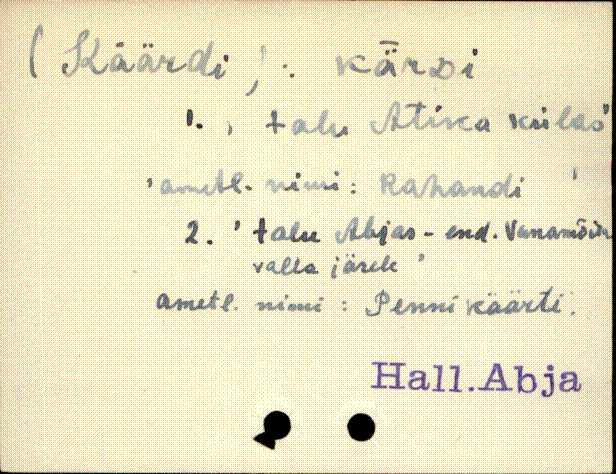 (Käärdi): kār̄di
1. , talu Atika külas'
'ametl. nimi: Rahandi '
2. ' talu Abjas - end. Vanamõisa
valla järele '
ametl. nimi : Pennikäärti.
Hall. Abja